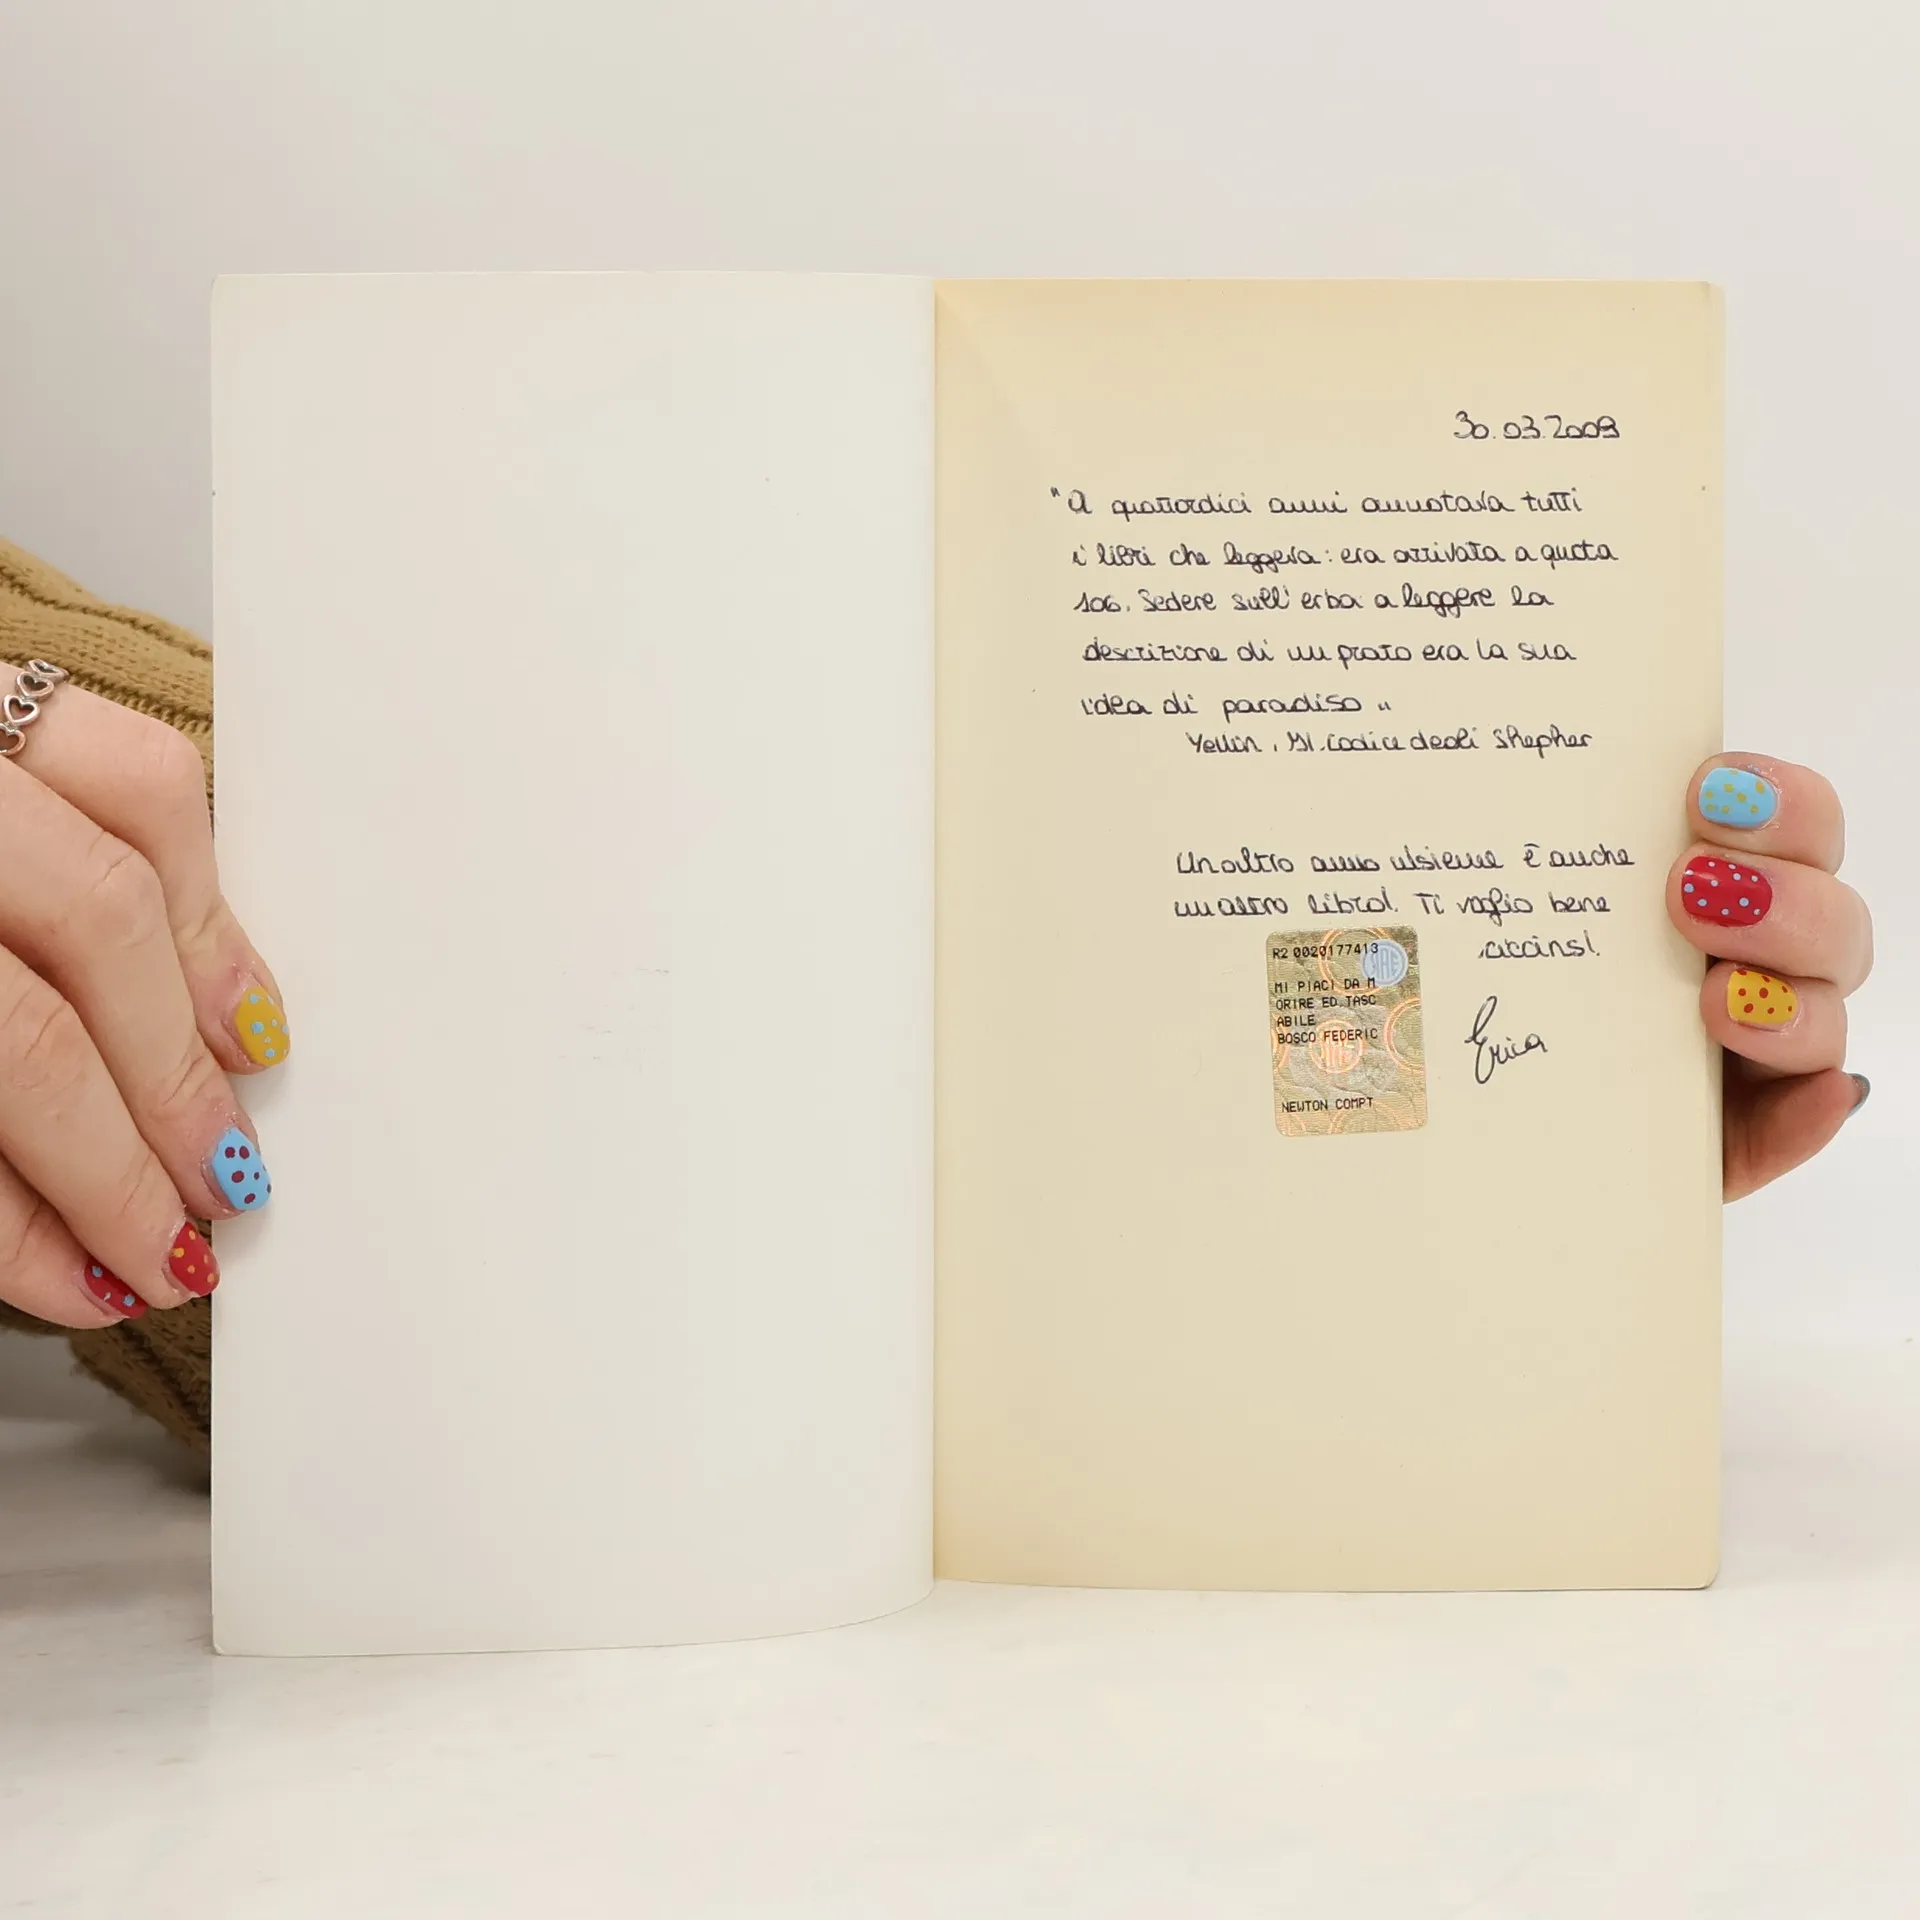 30.03.2009
"A quattordici anni annotava tutti
i libri che leggeva: era arrivata a quota
106. Sedere sull'erba a leggere la
descrizione di un prato era la sua
idea di paradiso"
Yellin, Il codice degli Shepher
Un altro anno insieme è anche
un altro libro! Ti voglio bene
Erica
R2 0020177413
SIAE
MI PIACI DA M
ORIRE ED.TASC
ABILE
BOSCO FEDERIC
NEWTON COMPT